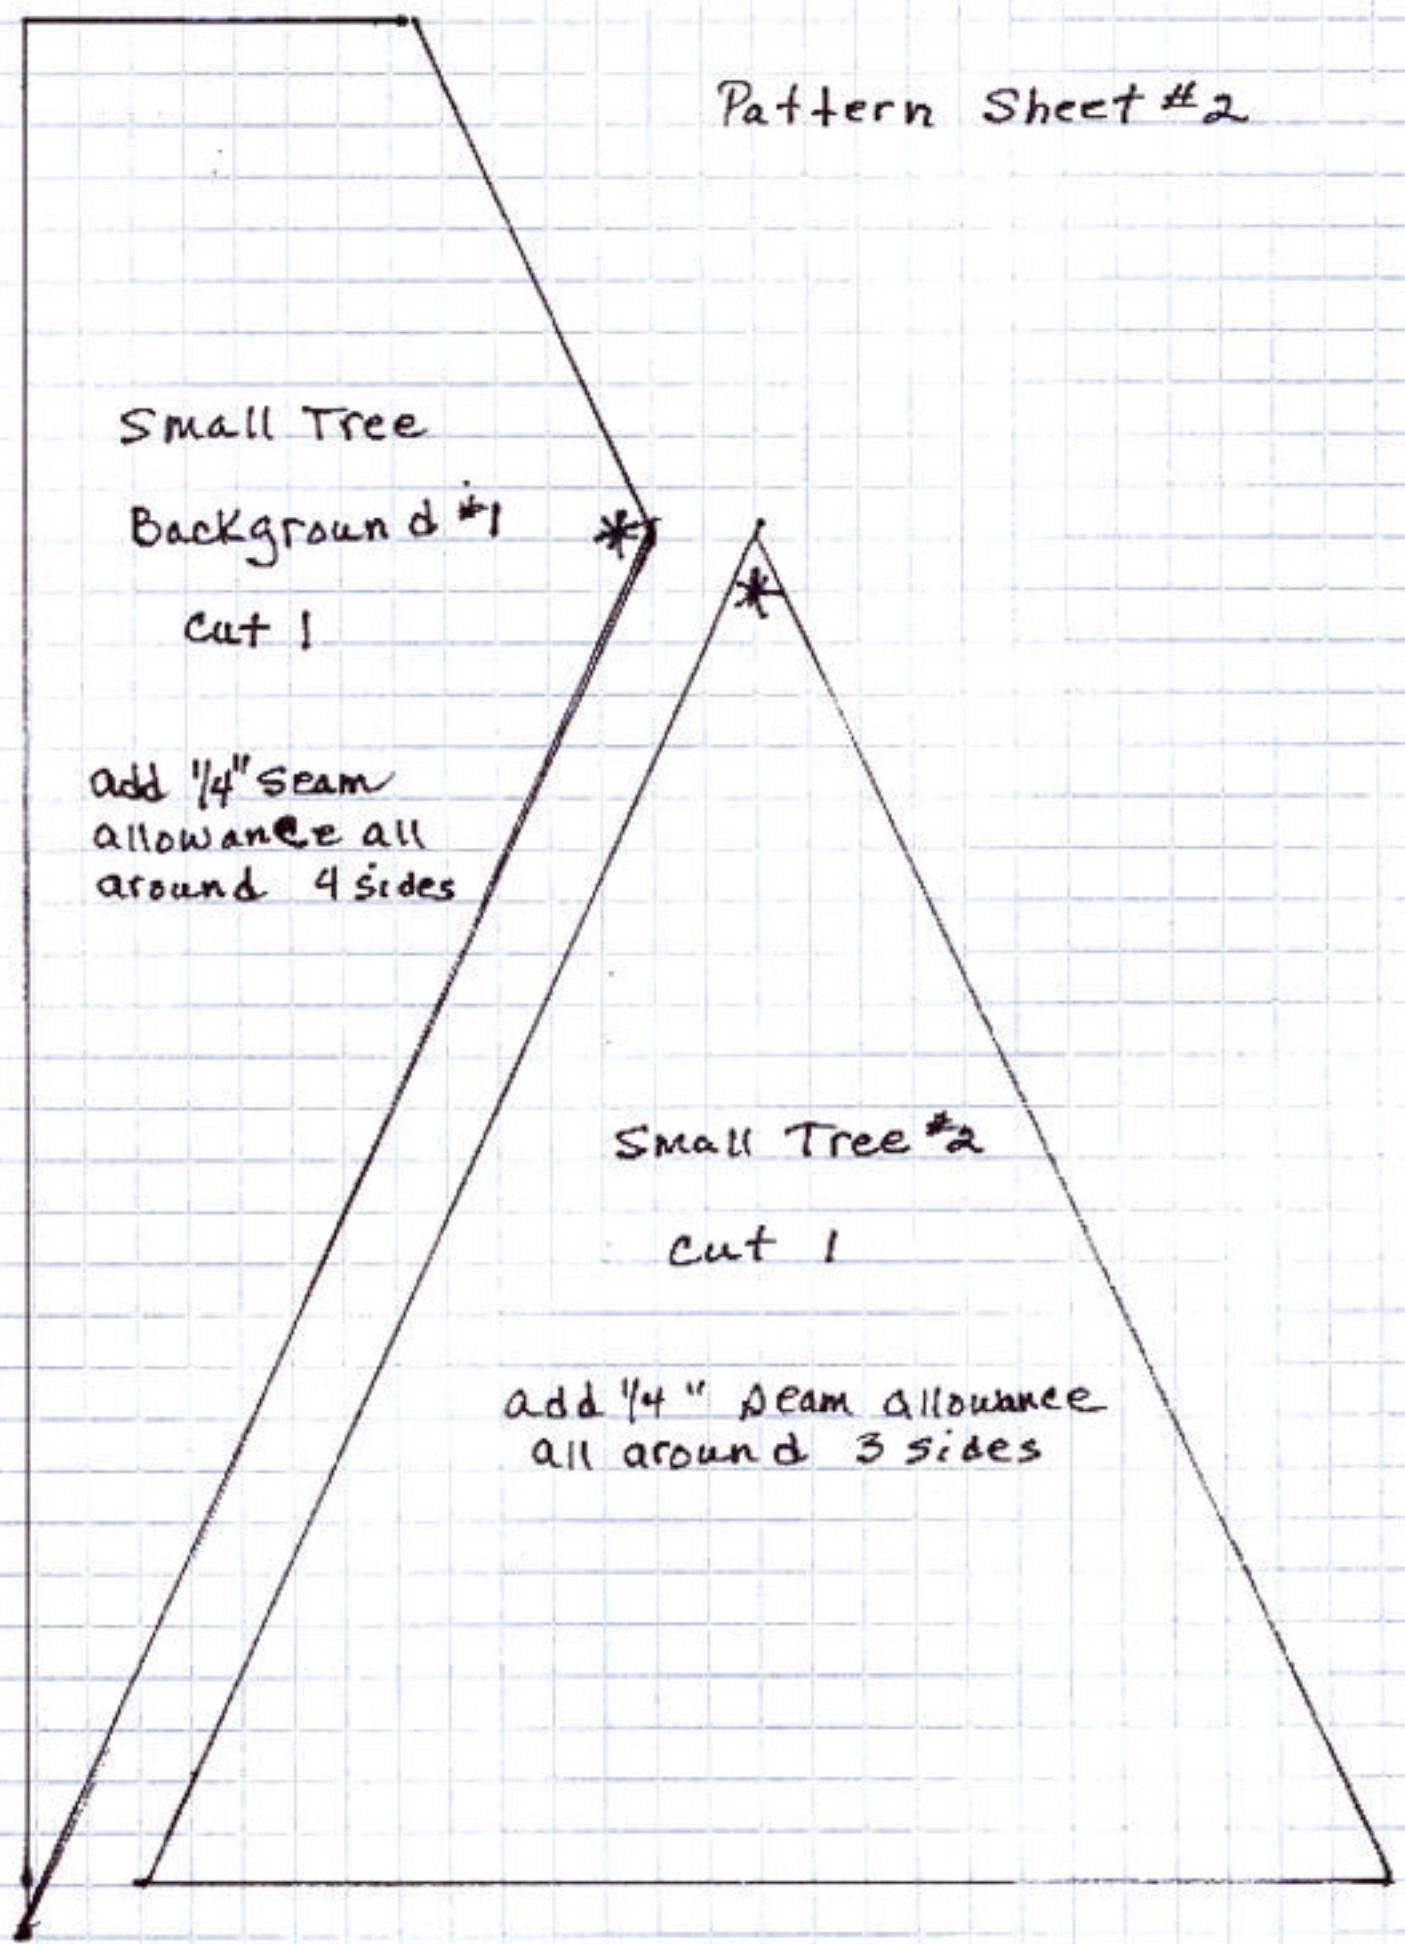 Pattern Sheet #2
Small Tree
Background #1
cut 1
add 1/4" seam
allowance all
around 4 sides
*
*
Small Tree #2
cut 1
add 1/4" seam allowance
all around 3 sides